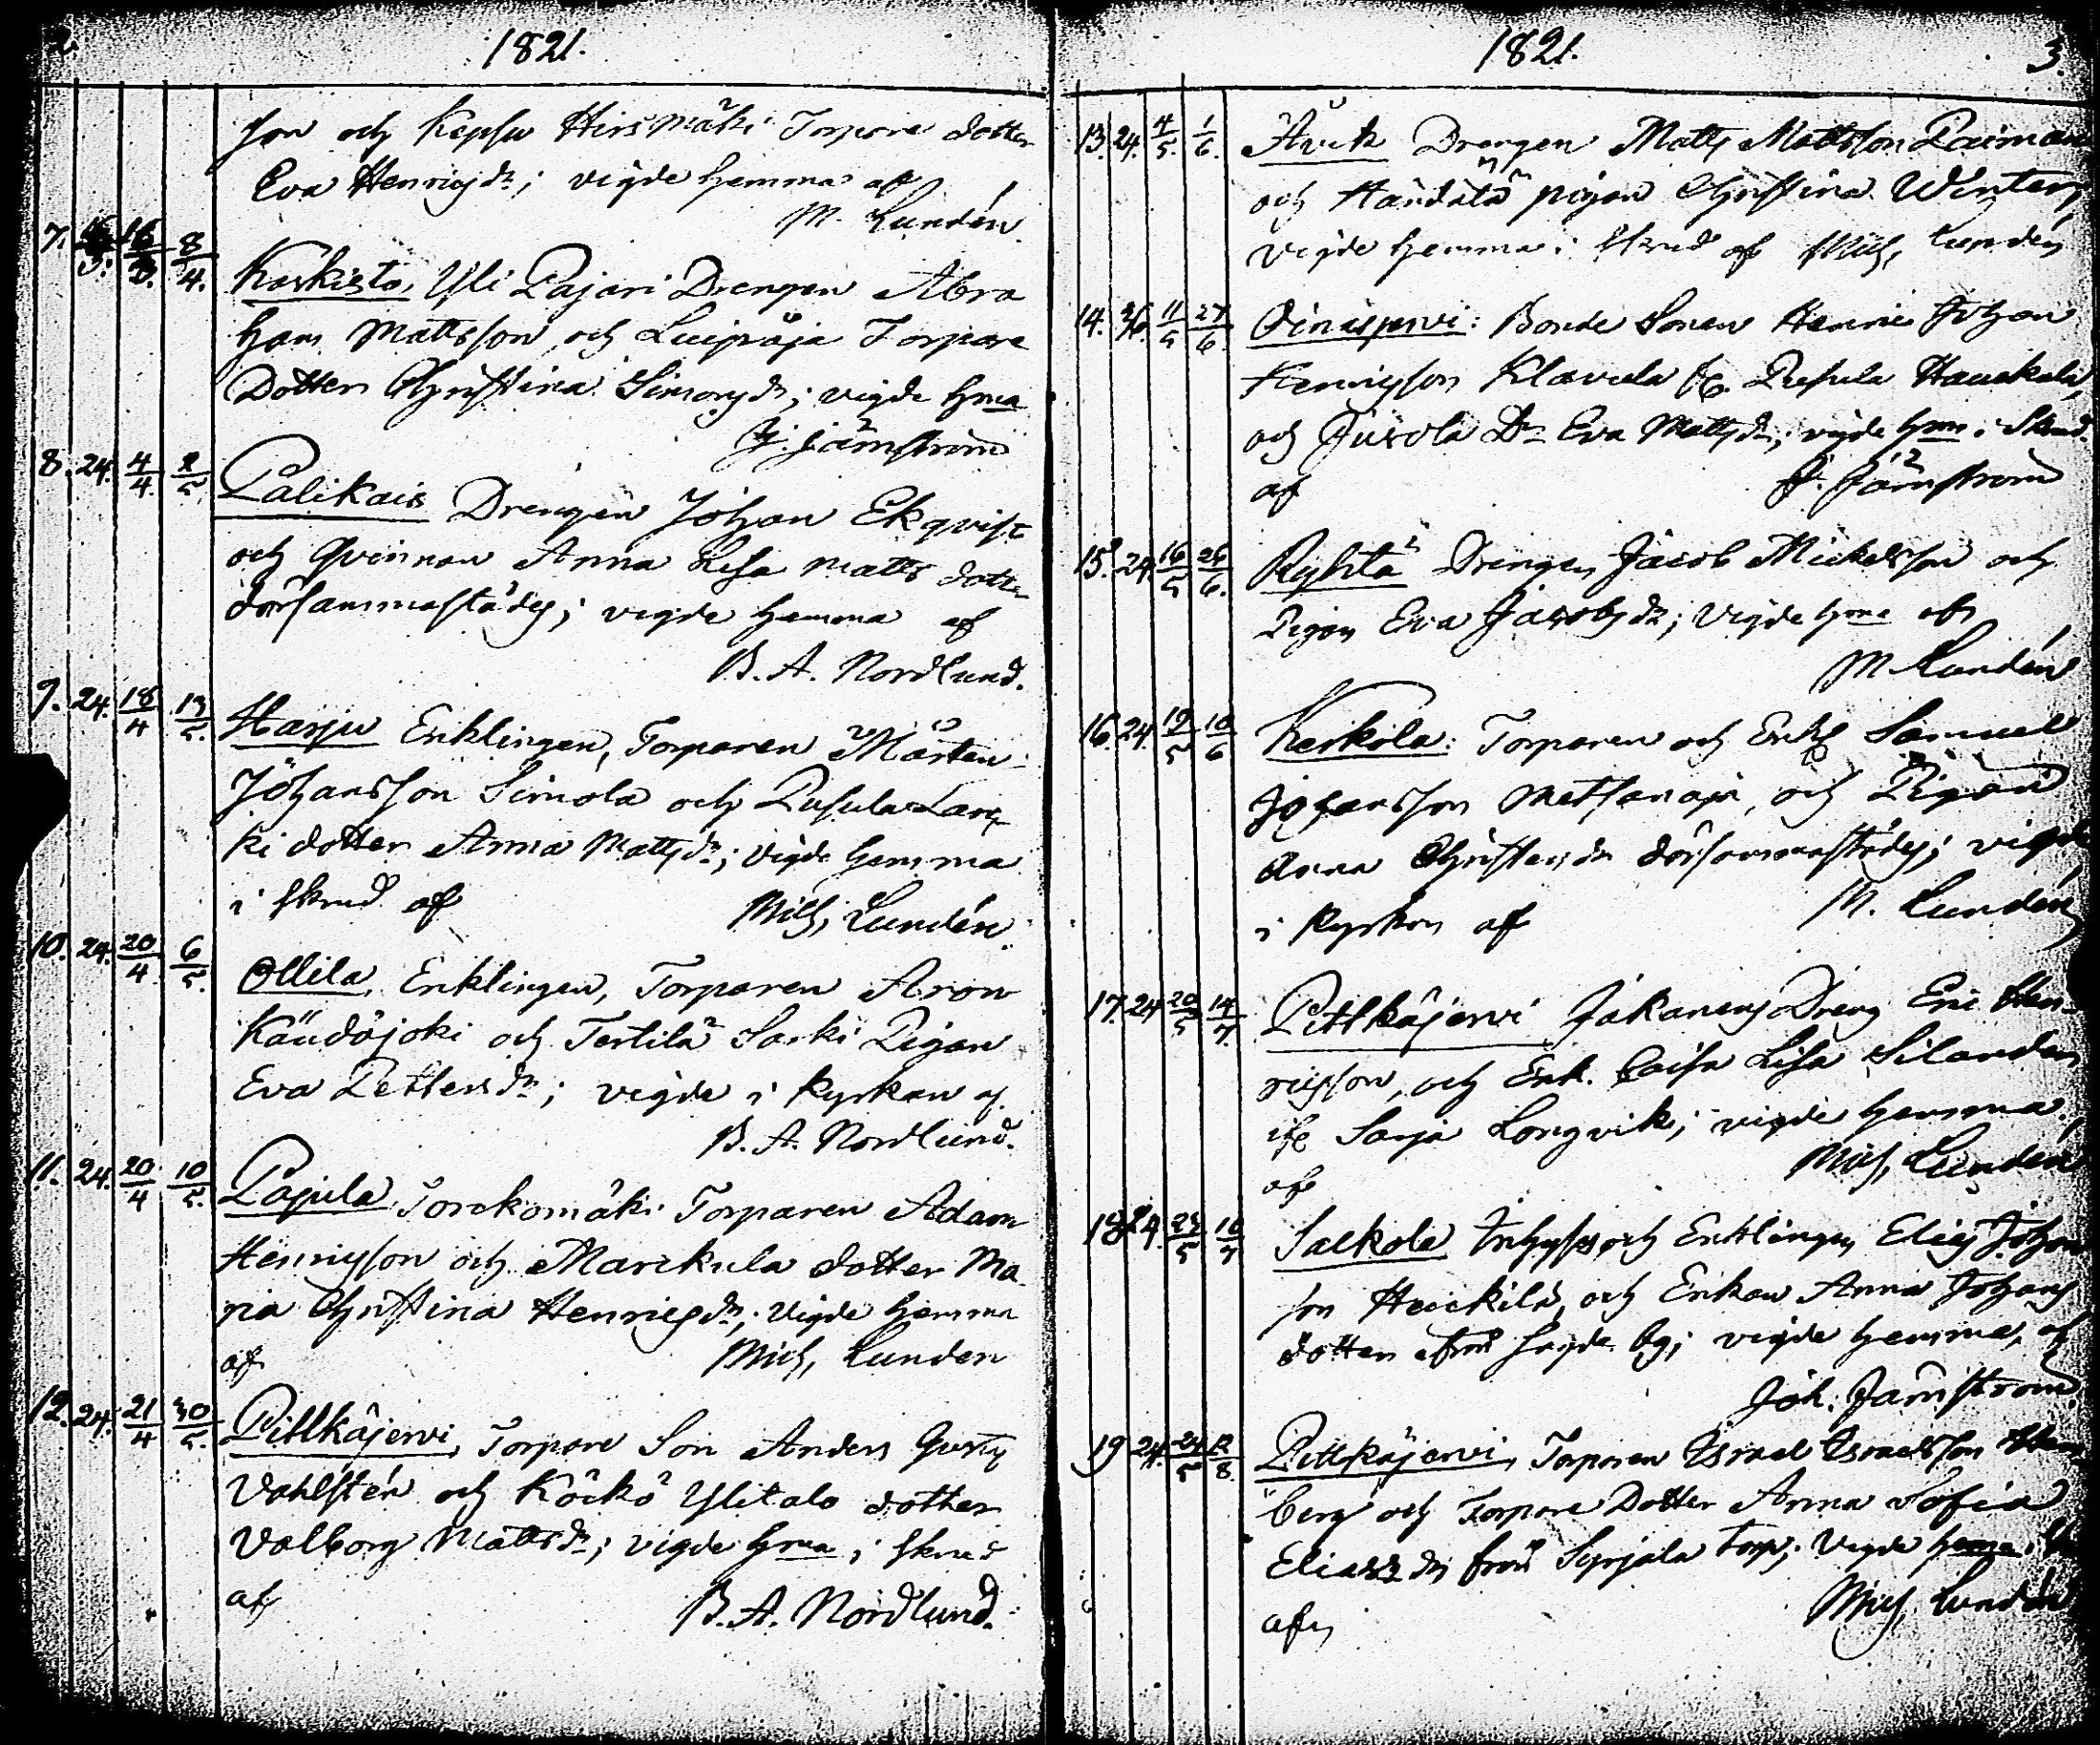 2. 1821.
son och Kepsu Hirsmäki Torpare dotter
Eva Henricsdr; vigde hemma af
M. Lundén
7. 16/3. 8/4. Koskisto, Yli Pajari Drengen Abra
ham Mattsson, och Luipaja Torpare
Dotter Christina Simonsdr; vigde hma
J. Jämström
8. 24. 4/4. 2/5. Palikais Drengen Johan Ekqvist
och Qvinnan Anna Lisa Matts dotter
därsammastädes; vigde hemma af
B. A. Nordlund.
9. 24. 18/4 13/5. Harju Enklingen, Torparen Mårten
Johansson Simola och Pusula Lau
ki dotter Anna Mattsdr; vigde hemma
i skrud af Mich, Lundén
10. 24. 20/4 6/5. Ollila, Enklingen, Torparen Aron
Käudöjoki och Tertilä Sarki Pigan
Eva Pettersdr; vigde i Kyrkan af
B. A. Nordlund.
11. 24. 20/4 10/5. Papula Torckomäki Torparen Adam
Henricsson och Marckula dotter Ma
ria Christina Henricsdr; vigde hemma
af Mich, Lunden
12. 24. 21/4 30/5. Pitkäjervi, Torpare Son Anders Gustf
Vahlstén och Köckö Ylitalo dotter
Valborg Mattsdr; vigde hma i skrud
af B. A. Nordlund.
1821. 3.
13. 24. 4/5. 1/6. Åvik Drengen Matts Mattsson Paiman
och Händälä pigan Christina Winter,
vigde hemma i skrud af Mich, Lundén
14. 11/5 27/6. Oinasjervi: Bonde Sonen Henric Johan
Henricsson Klavula fr. Pusula Hauckala,
och Jusola Dr Eva Mattsdr, vigde hma i Skrud
af J. Jämström
15. 24. 16/5 26/6. Ryhtä Drengen Jacob Mickelsson och
Pigan Eva Jacobsdr; vigde hma af
M Lundén
16. 24. 19/5 10/6 Kerkola: Torparen och Enkl Samuel
Johansson Metsanoja, och Pigan
Anna Christersdr därsammastädes; vigde
i Kyrkan af M. Lundén
17. 24 20/5 14/7. Pitkäjervi Jakanens Dreng Eric Hen-
ricsson, och Enk. Caisa Lisa Silander
ifr Sarja Longvik; vigde hemma
af Mich, Lundén
18. 24. 23/5 10/7 Salkola Inhyses och Enklingen Elias Johan
son Heickilä, och Enkan Anna Johans
dotter från sagde by; vigde hemma, af
Joh. Jämström
19 24. 24/5 12/8. Pitkäjervi, Torparen Israel Israelsson
berg och Torpare Dotter Anna Sofia
Eliasdr från Syrjälä torp; vigde hema
af Mich, Lundén